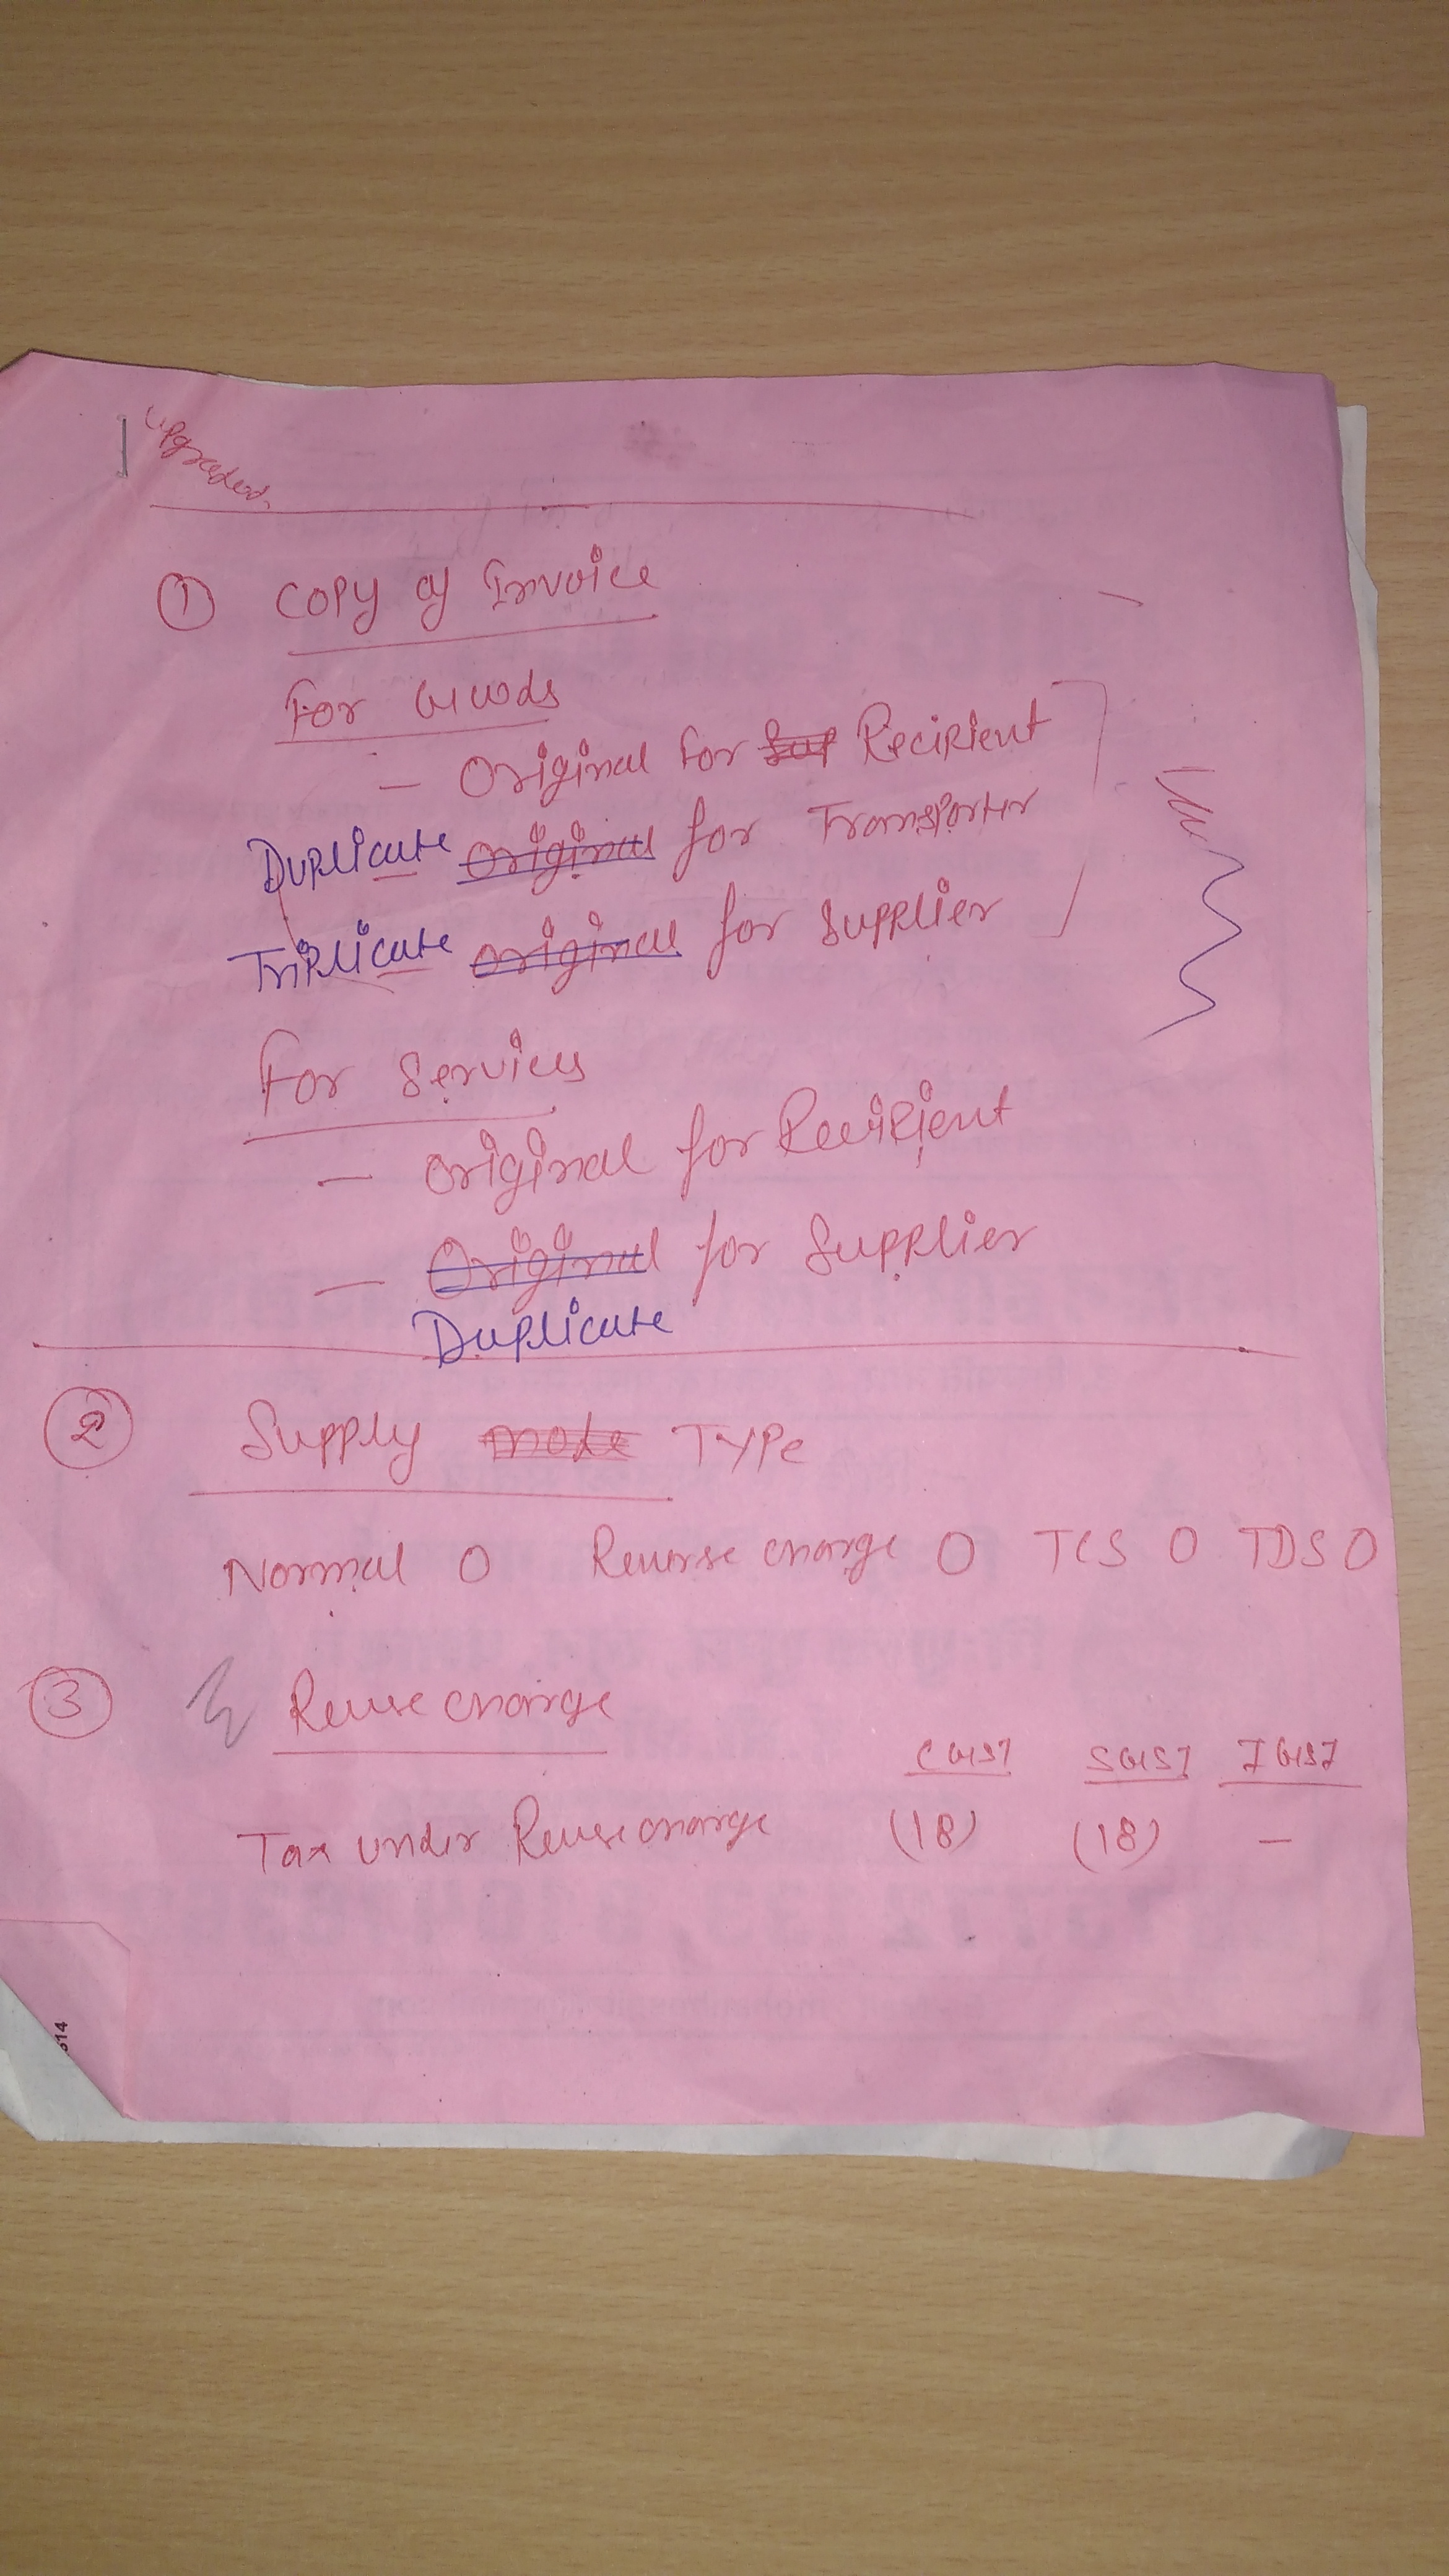 upgraded.
① Copy of Invoice
For Goods
— Original for Recipient
Duplicate original for Transporter
Triplicate original for Supplier
For Services
— original for Recipient
— Original for Supplier
Duplicate
② Supply mode Type
Normal O Reverse charge O TCS O TDS O
③ Reuse charge
CGST SGST IGST
Tax under Reuse charge (18) (18) —
614